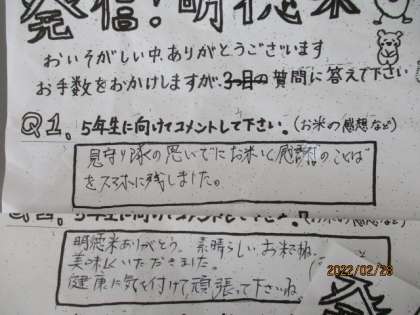 発信!明徳米
おいそがしい中、ありがとうございます
お手数をおかけしますが、3つ目の質問に答えて下さい
Q1. 5年生に向けてコメントして下さい。(お米の感想など)
見守り隊の思いでにお米いく感謝のことば
をスマホに残しました。
5年生に向けてコメントして下さい。(お米の感想など)
明徳米ありがとう。素晴らしいお米でね、
美味しくいただきました。
健康に気を付けて頑張って下さいね
2022/02/28